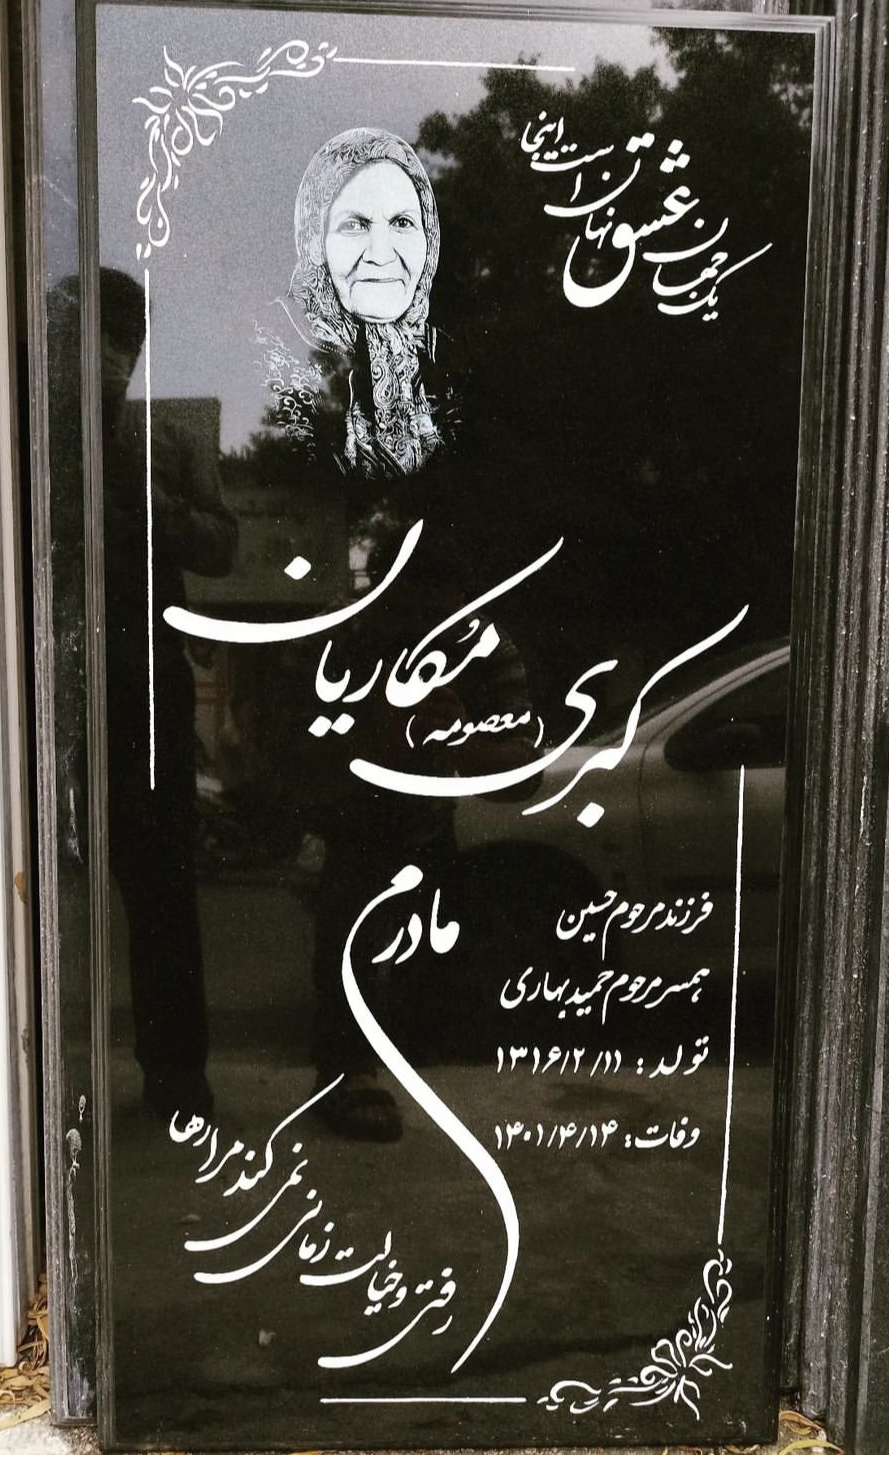 یک جهان عشق نهان است اینجا
کبری مکاریان
(معصومه)
فرزند مرحوم حسین
همسر مرحوم حمید بهاری
تولد: ۱۳۱۶/۲/۱۱
وفات: ۱۴۰۱/۴/۱۴
مادرم
رفتی و خیالت زمانی نمی کند مرا رها